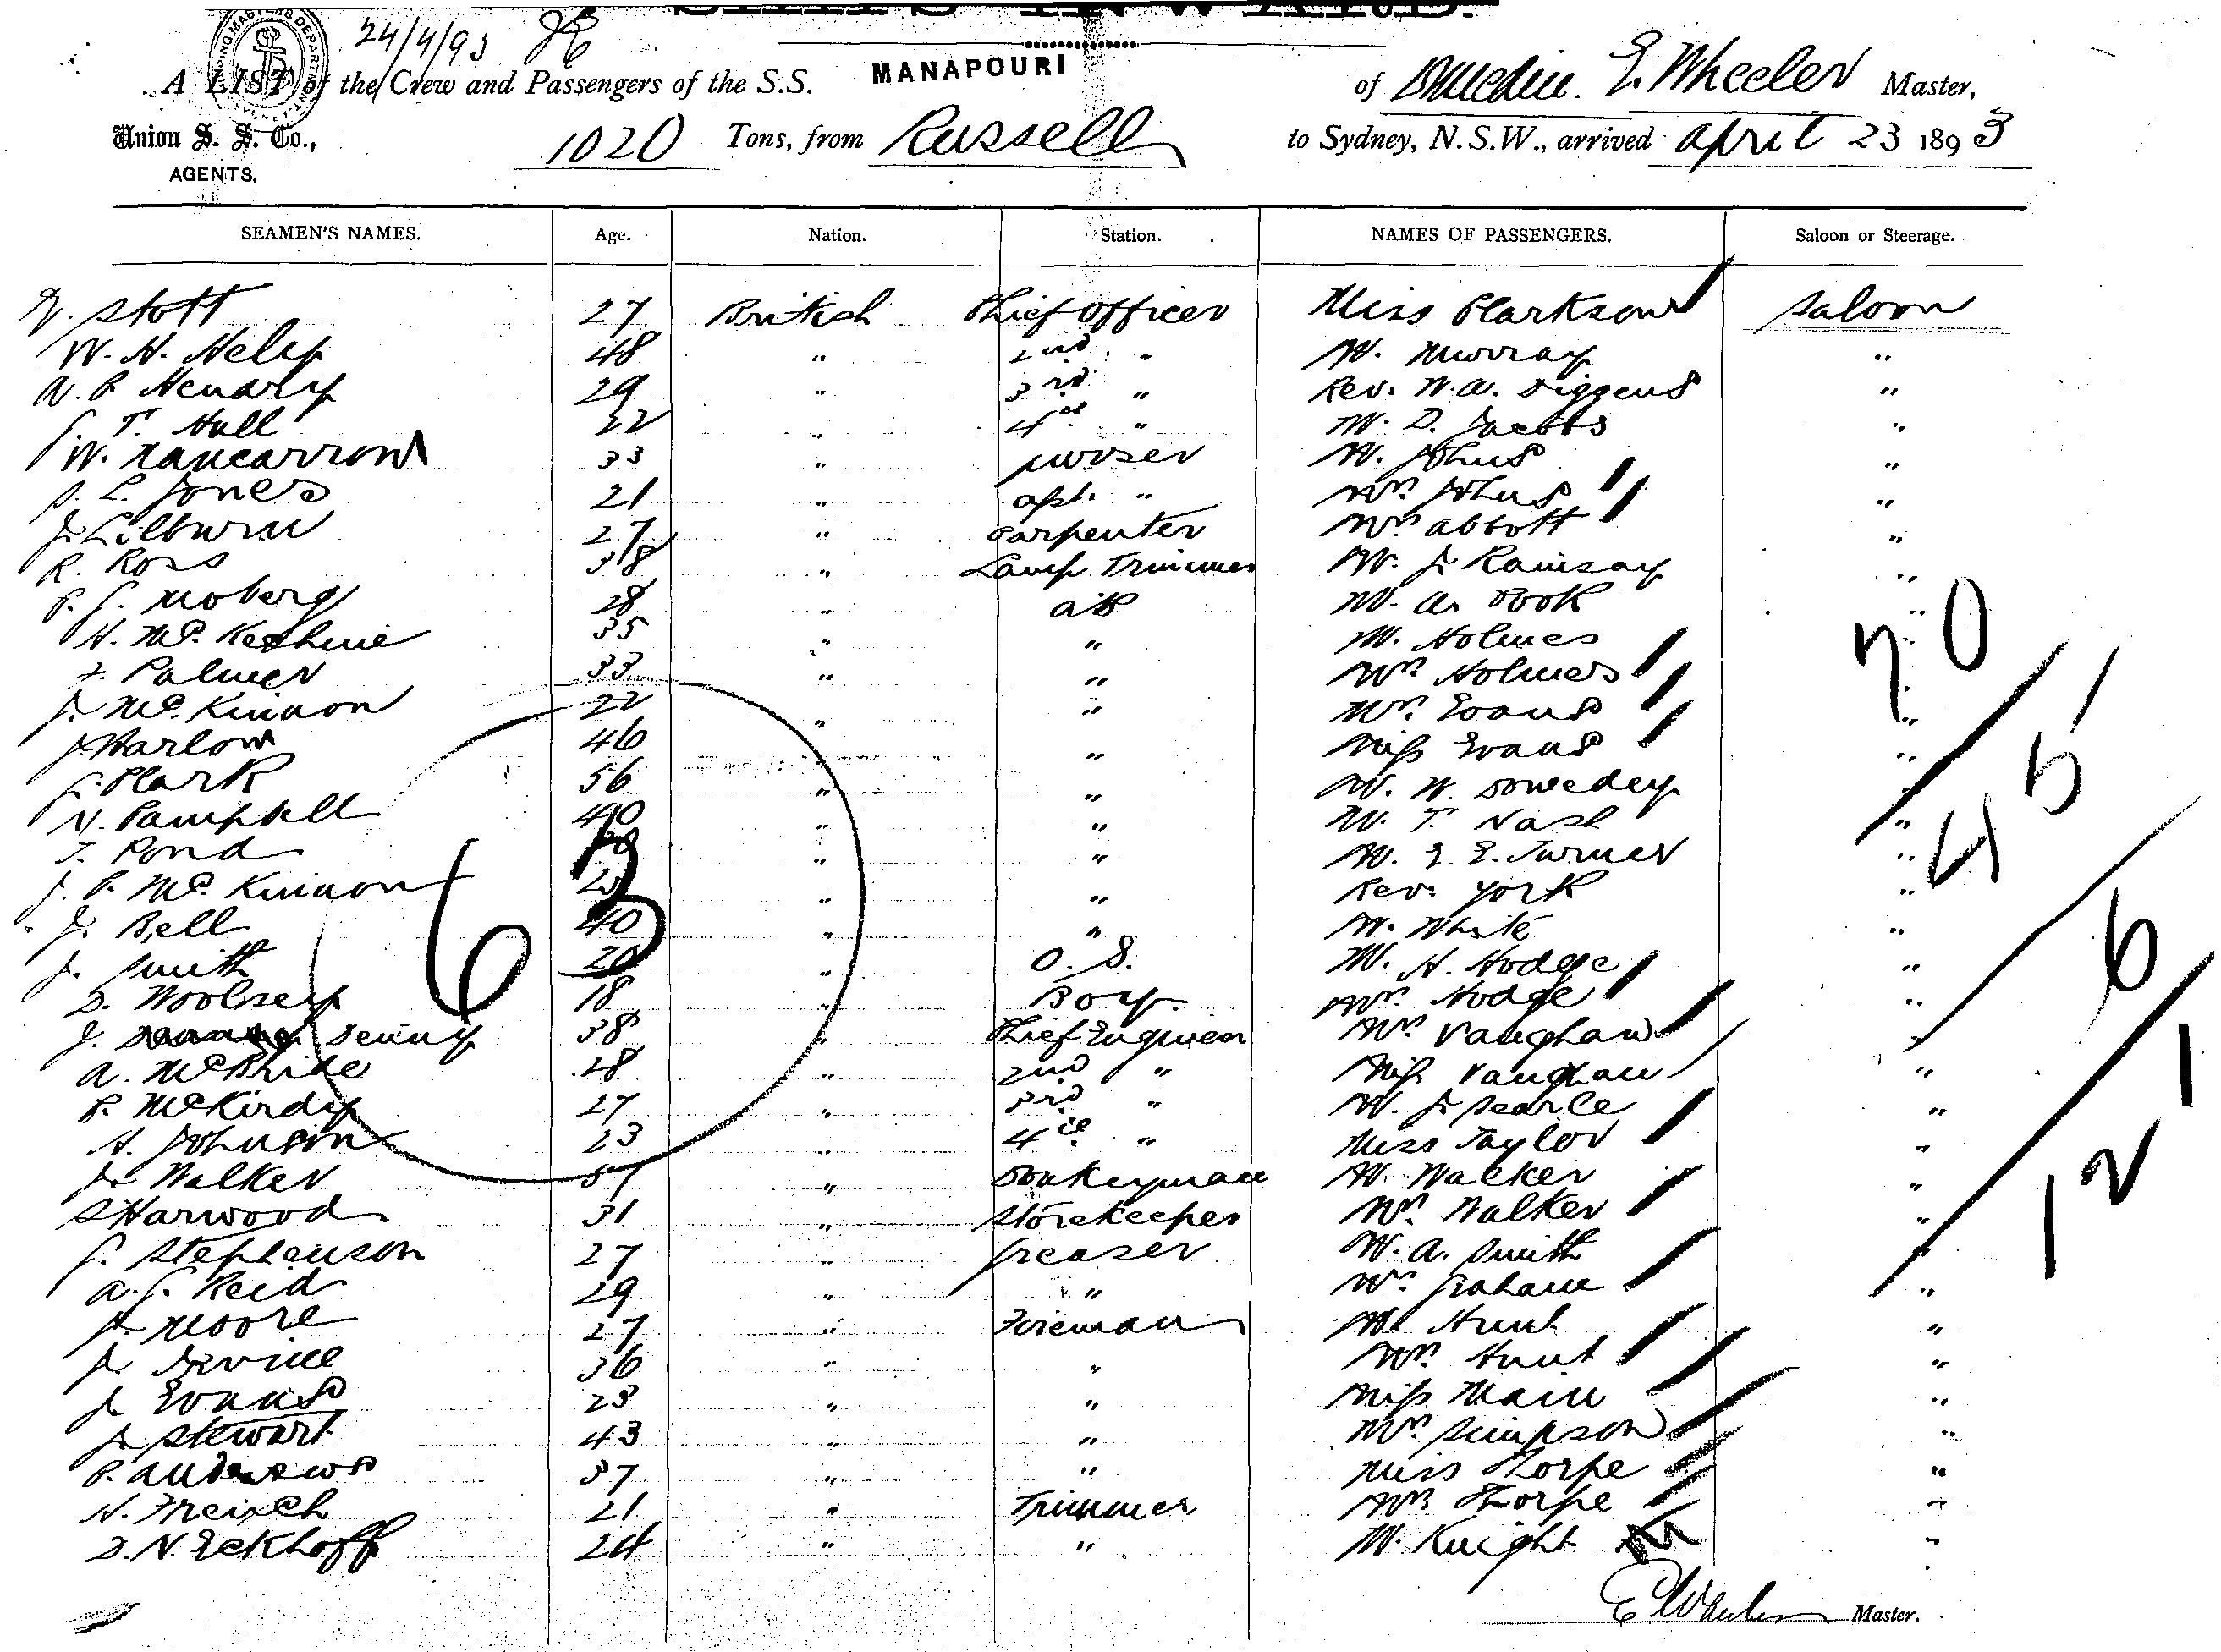 24/4/93
A LIST of the Crew and Passengers of the S.S. MANAPOURI of Dunedin. E. Wheeler Master,
Union S. S. Co., AGENTS. 1020 Tons, from Russell to Sydney, N.S.W., arrived April 23 1893
SEAMEN'S NAMES. Age. Nation. Station. NAMES OF PASSENGERS. Saloon or Steerage.
Stott 27 British Chief Officer Miss Clarkson Saloon
W. H. Help 48 " 2nd " Mr. Murray "
A. C. Hendry 29 " 3rd " Rev. W. A. Diggens "
G. T. Hall 22 " 4th " Mr. D. Jacobs "
W. Nancarrow 33 " purser Mr. Johns "
J. L. Jones 21 " asst. " Mrs Johns "
J. Lilburn 27 " Carpenter Mrs Abbott "
R. Ross 38 " Lamp Trimmer Mr. J. Ramsay "
C. G. Moberg 28 " AB Mr. A. Cook "
H. McKechnie 35 " " Mr. Holmes "
F. Palmer 33 " " Mrs Holmes "
J. McKinnon 22 " " Mrs. Evans "
J. Harlow 46 " " Miss Evans "
G. Clark 56 " " Mr. W. Sowedey "
N. Campbell 40 " " Mr. T. Nash "
T. Pond " " Mr. E. E. Turner "
J. C. McKinnon " " Rev. York "
J. Bell 40 " " Mr. White "
J. Smith 20 " O. S. Mr. H. Hodge "
D. Woolsey 18 " Boy Mrs Hodge "
J. Denny 38 " Chief Engineer Mrs Vaughan "
A. McBride 28 " 2nd " Miss Vaughan "
R. McKirdy 27 " 3rd " Mr. J. Pearce "
A. Johnson 23 " 4th " Miss Taylor "
J. Walker 57 " Donkeyman Mr. Walker "
S Harwood 31 " Storekeeper Mrs. Walker "
G. Stephenson 27 " Greaser Mr. A. Smith "
A. G. Reid 29 " " Mrs. Graham "
J. Moore 27 " Fireman Mr Hunt "
J. Irvine 36 " " Mrs. Hunt "
J Evans 23 " " Miss Main "
J. Stewart 43 " " Mrs. Simpson "
C. Andrews 37 " " Miss Thorpe "
W. French 21 " Trimmer Mrs. Thorpe "
D. N. Eckhoff 24 " " Mr. Knight "
63
70
45
6
121
E Wheeler Master.